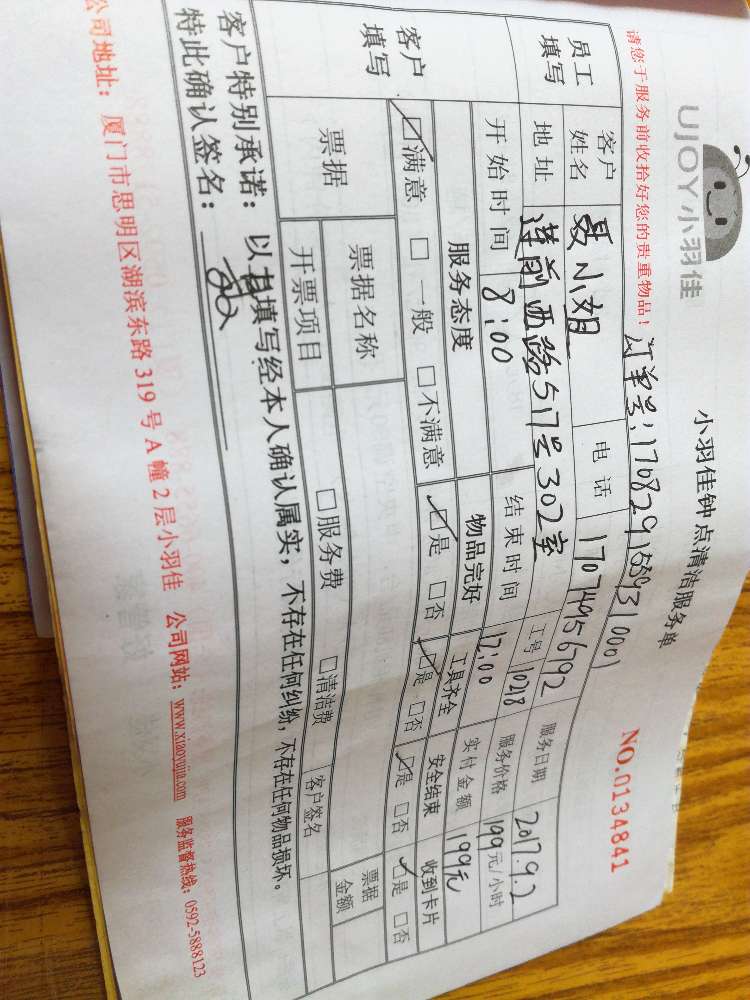 UJOY小羽佳
小羽佳钟点清洁服务单
NO.0134841
请您于服务前收拾好您的贵重物品！
订单号:17082915593110001
员工填写
客户姓名 聂小姐 电话 17074956792 服务日期 2017.9.2
地址 莲前西路517号302室 工号 10218 服务价格 199元/小时
开始时间 8:00 结束时间 12:00 实付金额 199元
客户填写
服务态度 物品完好 工具齐全 安全结束 收到卡片
☑满意 □一般 □不满意 ☑是 □否 ☑是 □否 ☑是 □否 ☑是 □否
票据 票据名称 票据金额
开票项目 □服务费 □清洁费 客户签名
客户特别承诺：以上填写经本人确认属实，不存在任何纠纷，不存在任何物品损坏。
特此确认签名：
公司地址：厦门市思明区湖滨东路319号A幢2层小羽佳 公司网站：www.xiaoyujia.com 服务监督热线：0592-5888123